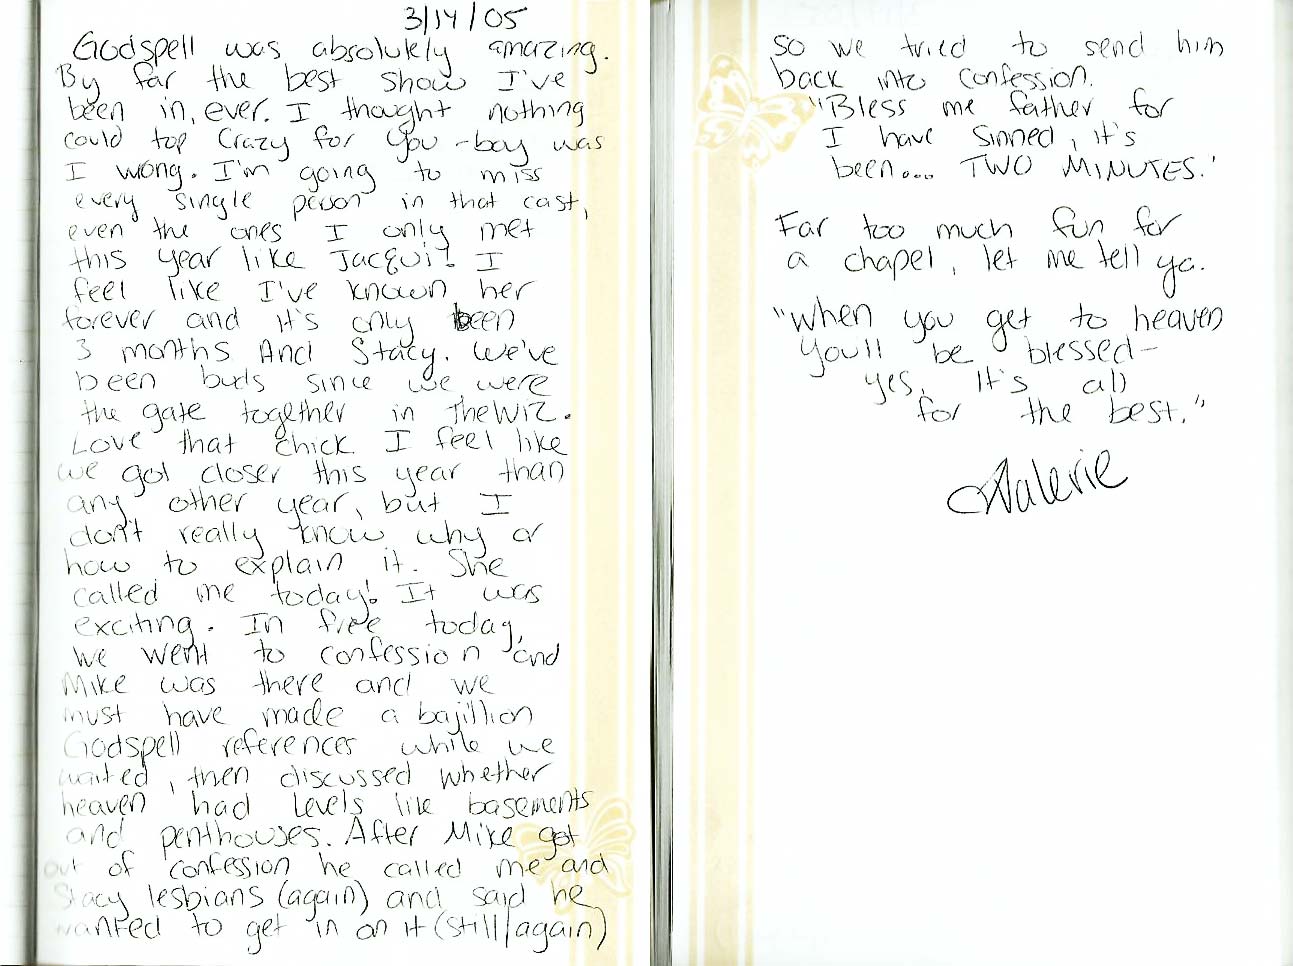 3/14/05
Godspell was absolutely amazing.
By far the best show I've
been in, ever. I thought nothing
could top Crazy for You - boy was
I wrong. I'm going to miss
every single person in that cast,
even the ones I only met
this year like Jacqui! I
feel like I've known her
forever and it's only been
3 months And Stacy. We've
been buds since we were
the gate together in The Wiz.
Love that chick. I feel like
we got closer this year than
any other year, but I
don't really know why or
how to explain it. She
called me today! It was
exciting. In free today,
we went to confession and
Mike was there and we
must have made a bajillion
Godspell references while we
waited, then discussed whether
heaven had levels like basements
and penthouses. After Mike got
out of confession he called me and
Stacy lesbians (again) and said he
wanted to get in on it (still/again)
so we tried to send him
back into confession.
"Bless me father for
I have sinned, it's
been... TWO MINUTES.'
Far too much fun for
a chapel, let me tell ya.
"When you get to heaven
you'll be blessed-
yes, it's all
for the best."
Valerie